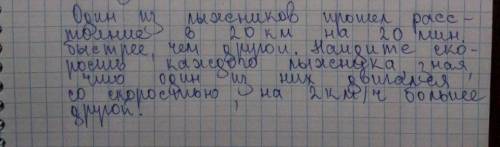 Один из лыжников прошел расс-
тояние в 20 км на 20 мин.
быстрее, чем другой. Найдите ско-
рость каждого лыжника, зная,
что один из них двигался
со скоростью на 2км/ч больше
другой.